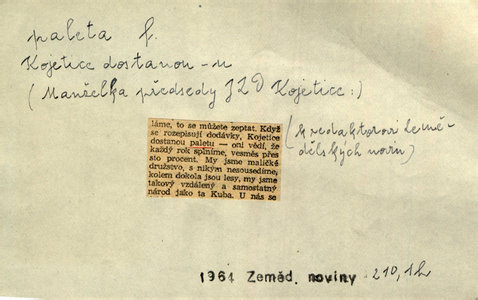 paleta f.
Kojetice dostanou -u
(Manželka předsedy JZD Kojetice:)
láme, to se můžete zeptat. Když
se rozepisují dodávky, Kojetice
dostanou paletu — oni vědí, že
každý rok splníme, vesměs přes
sto procent. My jsme maličké
družstvo, s nikým nesousedíme,
kolem dokola jsou lesy, my jsme
takový vzdálený a samostatný
národ jako ta Kuba. U nás se
(k redaktorovi Země-
dělských novin)
1964 Zeměd. noviny 210, 1h